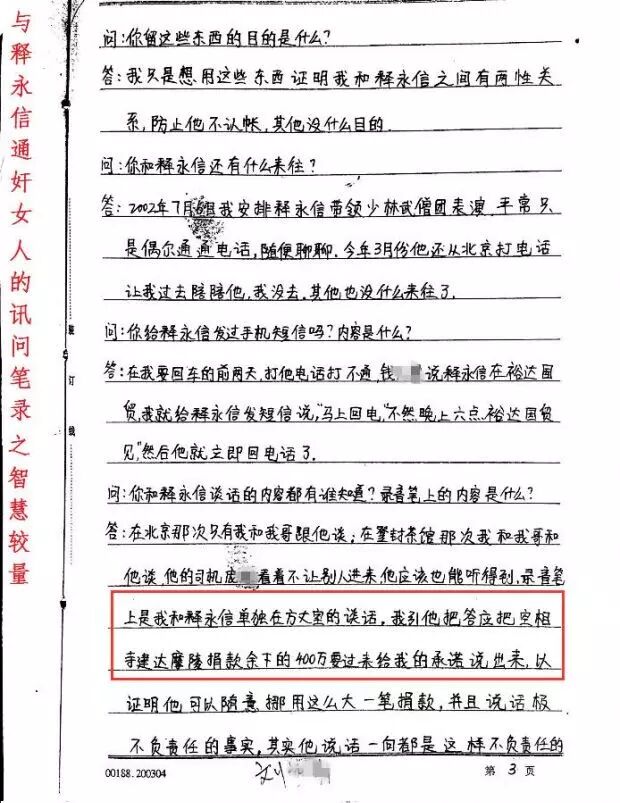 与释永信通奸女人的讯问笔录之智慧较量
问:你留这些东西的目的是什么?
答:我只是想用这些东西证明我和释永信之间有两性关
系,防止他不认帐,其他没什么目的.
问:你和释永信还有什么来往?
答:2002年7月我安排释永信带领少林武僧团表演,平常只
是偶尔通通电话,随便聊聊.今年3月份他还从北京打电话
让我过去陪陪他,我没去.其他也没什么来往了.
问:你给释永信发过手机短信吗?内容是什么?
答:在我要回车的前两天,打他电话打不通,钱 说释永信在裕达国
贸,我就给释永信发短信说,"马上回电,"不然晚上六点裕达国贸
见,"然后他就立即回电话了.
问:你和释永信谈话的内容都有谁知道?录音笔上的内容是什么?
答:在北京那次只有我和我哥跟他谈;在登封茶馆那次我和我哥和
他谈,他的司机 看着不让别人进来,他应该也能听得到,录音笔
上是我和释永信单独在方丈室的谈话,我引他把答应把空相
寺建达摩陵捐款余下的400万要过来给我的承诺说出来,以
证明他可以随意挪用这么大一笔捐款,并且说话极
不负责任的事实,其实他说话一向都是这样不负责任的
装
订
线
00188.200304
第3页